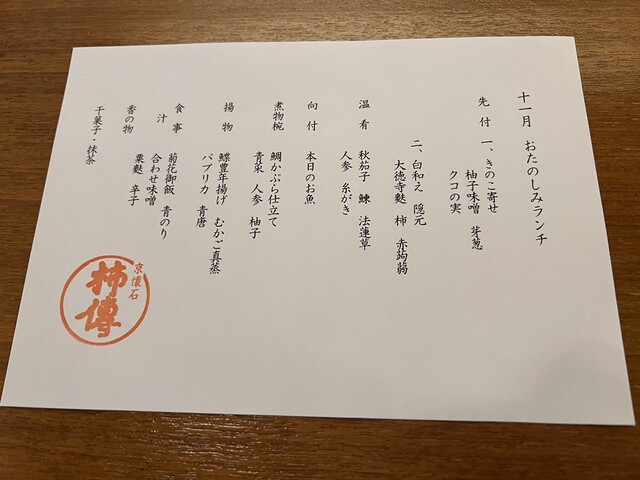 十一月 おたのしみランチ
先付 一、きのこ寄せ
柚子味噌 芽葱
クコの実
二、白和え 隠元
大徳寺麩 柿 赤蒟蒻
温肴 秋茄子 鰊 法蓮草
人参 糸がき
向付 本日のお魚
煮物椀 鯛かぶら仕立て
青菜 人参 柚子
揚物 鰈豊年揚げ むかご真蒸
パプリカ 青唐
食事 菊花御飯 青のり
汁 合わせ味噌
粟麩 辛子
香の物
干菓子・抹茶
京懐石
柿傳